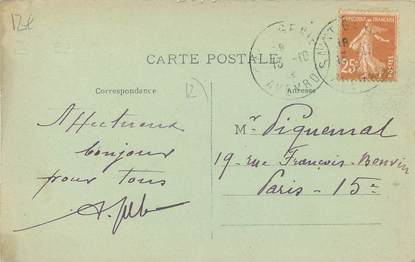 12€
CARTE POSTALE
Correspondance
Adresse
12
Affectueux
bonjour
pour tous
Mr Piquemal
19 - rue François - Bonvin
Paris - 15e
25c
POSTES